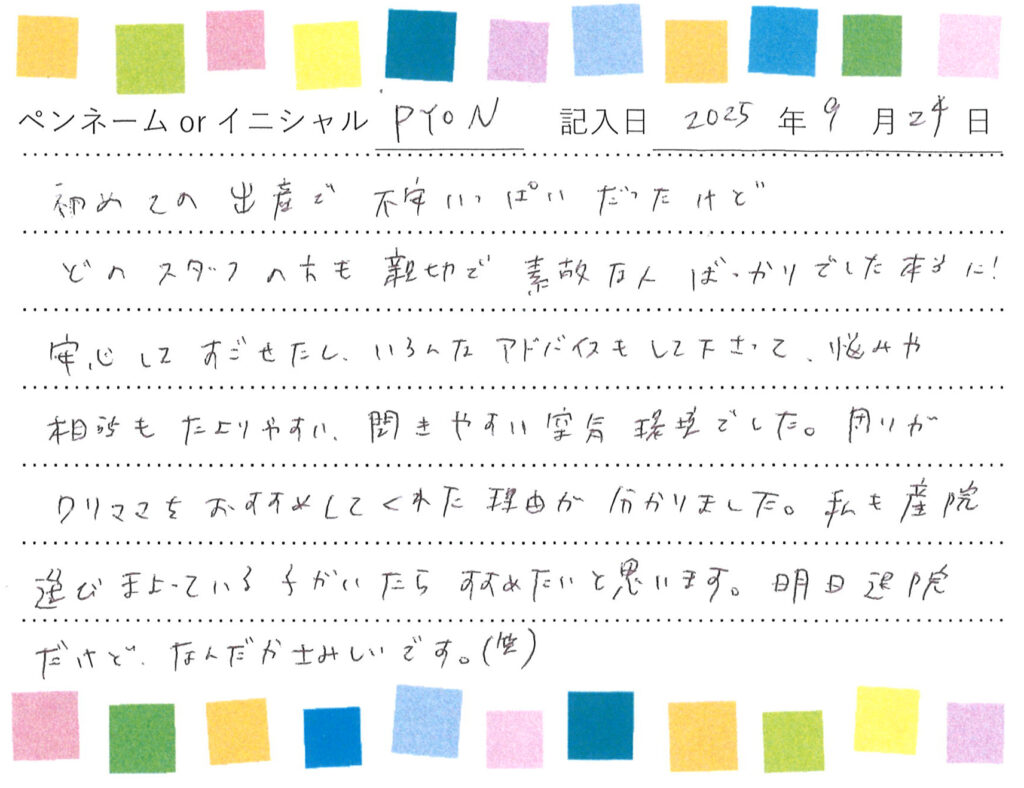 ペンネーム or イニシャル PYON 記入日 2025 年 9 月 24 日
初めての出産で 不安いっぱいだったけど
どのスタッフの方も親切で 素敵な人ばっかりでした本当に!
安心してすごせたし、いろんなアドバイスもして下さって、悩みや
相談もたよりやすい、聞きやすい空気 環境でした。周りが
クリママをおすすめしてくれた理由が分かりました。私も産院
選びまよっている子がいたらすすめたいと思います。明日退院
だけど、なんだかさみしいです。(笑)